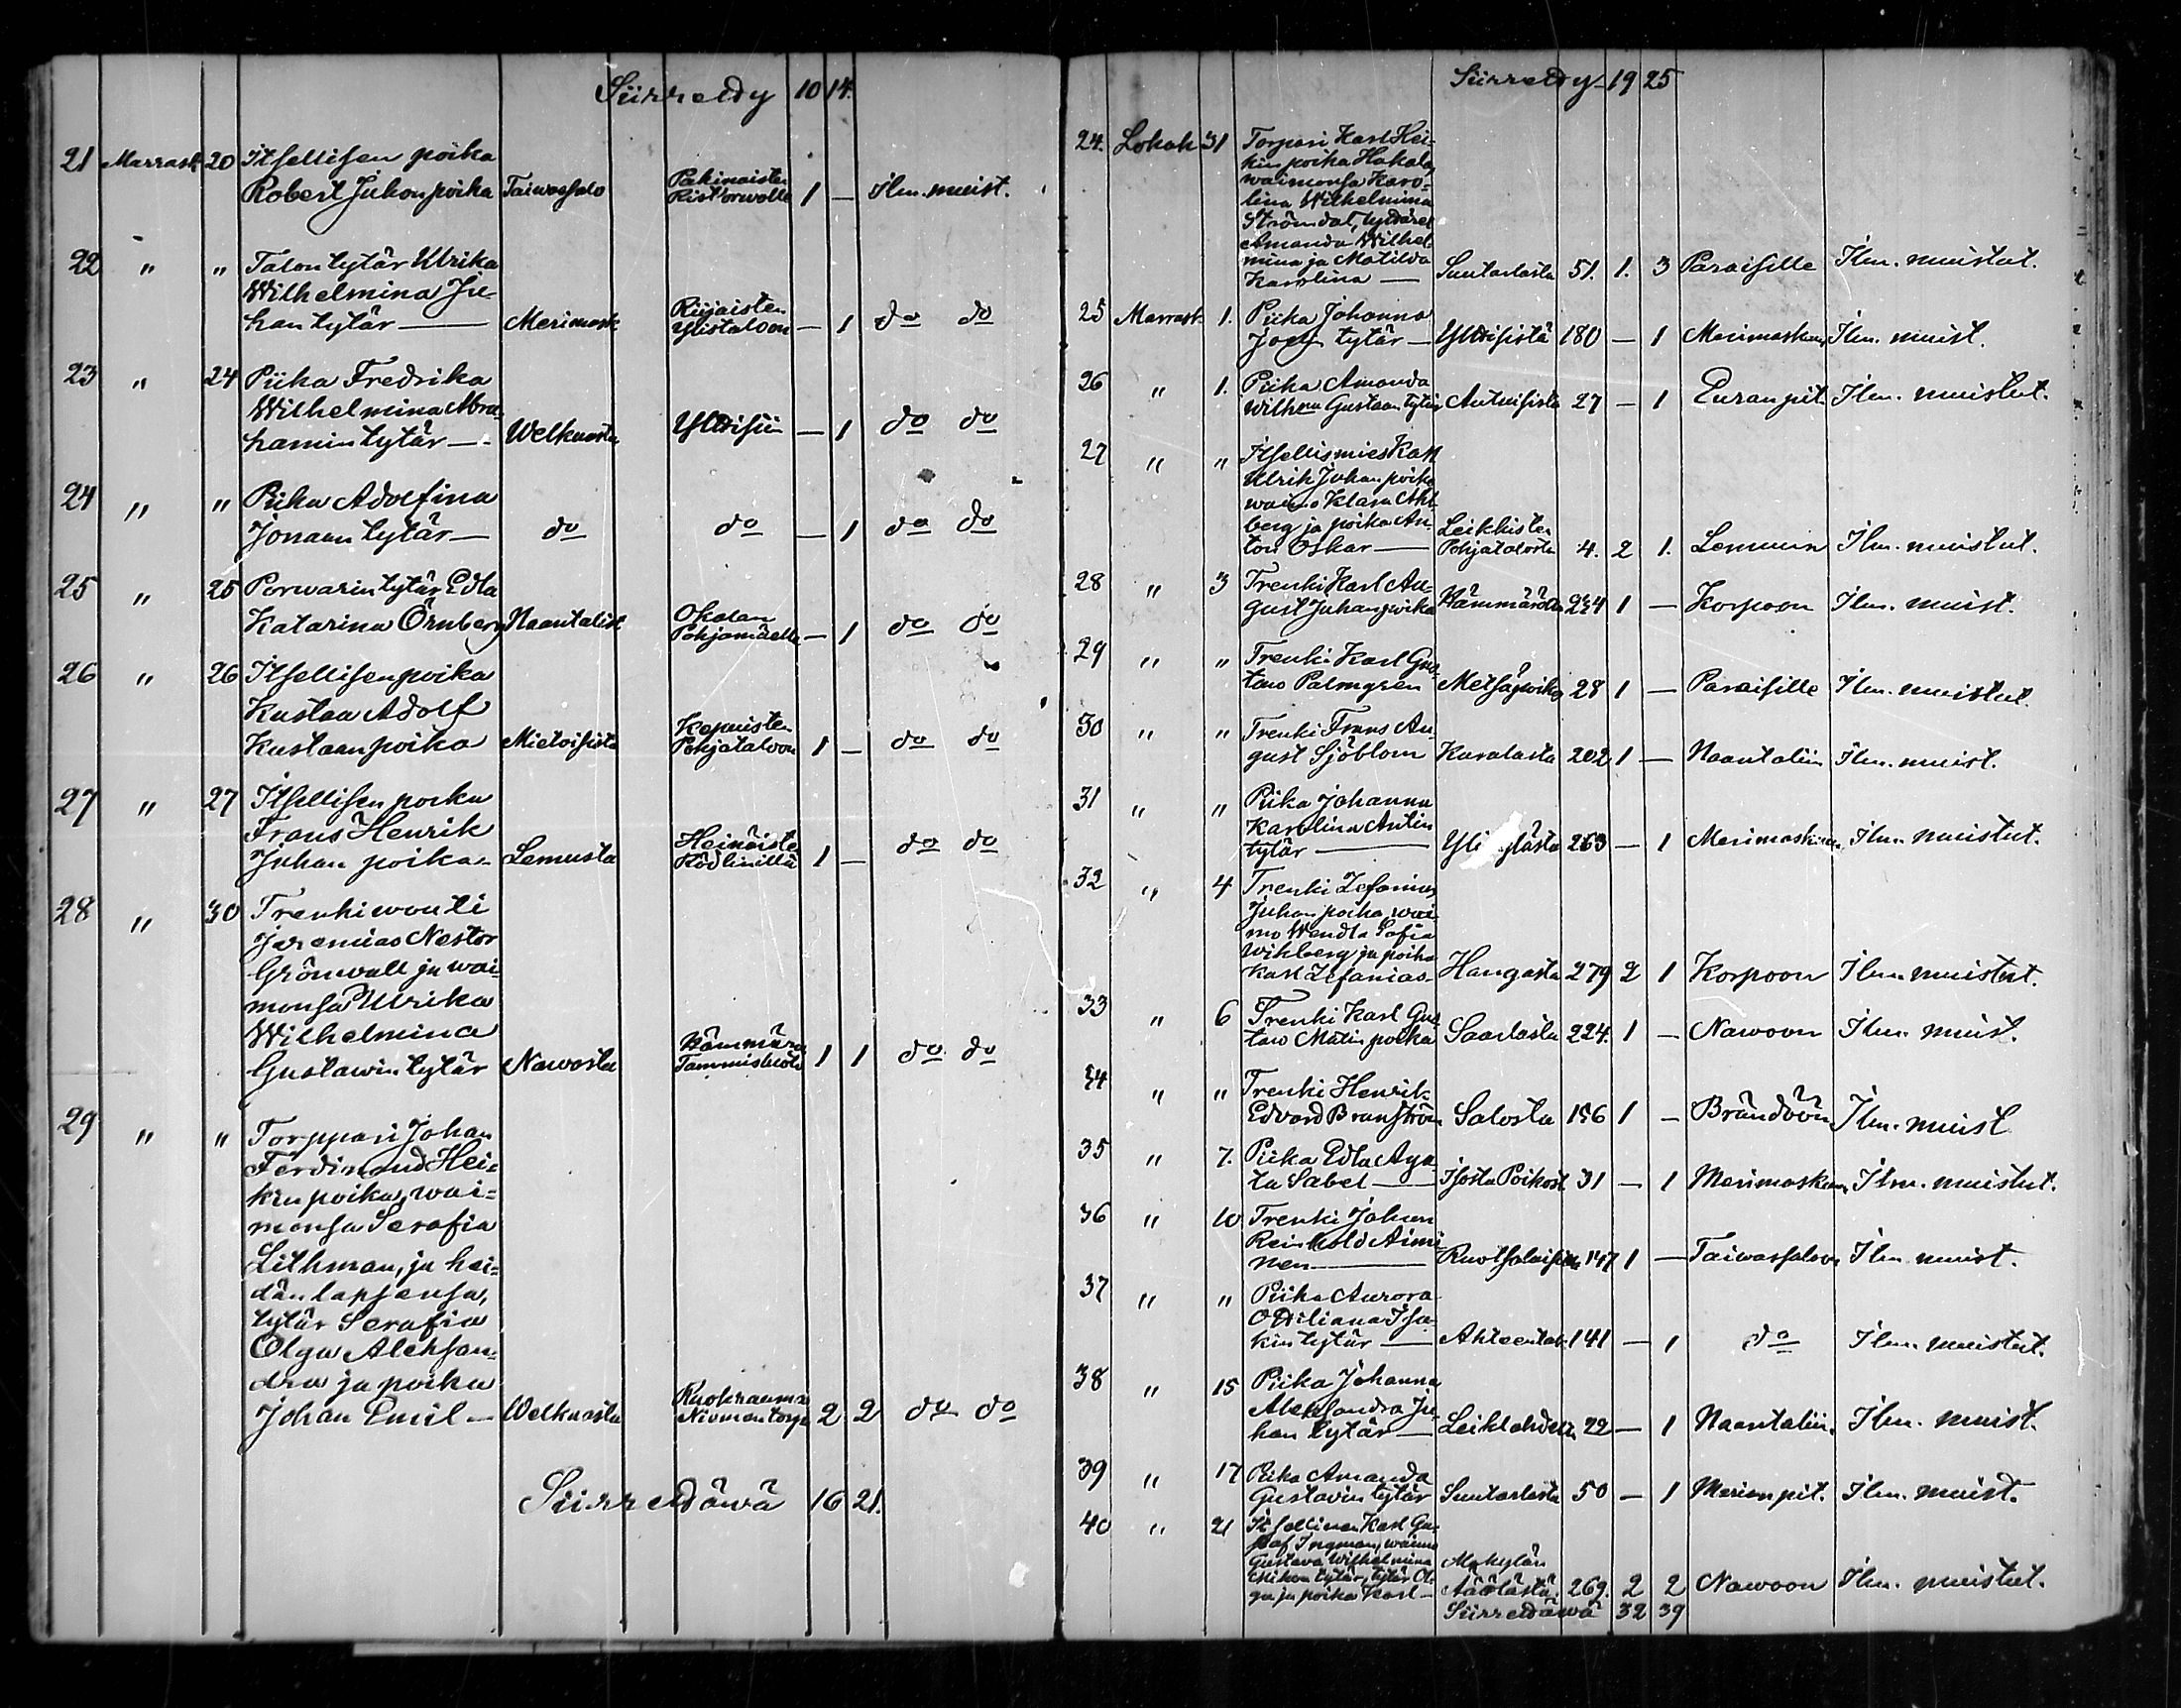 Siirretty 10 14.
21 Marrask 20 Itsellisen poika
Robert Juhonpoika Taiwassalo Pakinaisten Ristorwolle 1 — Ilm. muist.
22 " " Talontytär Ulrika
Wilhelmina Ju-
hantytär — Merimask Riijaisten Ylistaloon — 1 do do
23 " 24 Piika Fredrika
Wilhelmina Abra-
hamintytär — Welkuasta Yltäisiin — 1 do do
24 " " Piika Adolfina
Jonaantytär — do do — 1 do do
25 " 25 Porwarintytär Edla
Katarina Örnberg Naantalist Okalan Pohjamäelle — 1 do do
26 " 26 Itsellisenpoika
Kustaa Adolf
Kustaanpoika Mietoisista Pohjataloon 1 — do do
27 " 27 Itsellisen poika
Frans Henrik
Juhanpoika Lemusta Heinäisten 1 — do do
28 " 30 Trenkiwouti
Jeremias Nestor
Grönwall ja wai-
monsa Ulrika
Wilhelmina
Gustawintytär Nawosta Hämmärö 1 1 do do
29 " " Torppari Johan
Ferdinand Hei-
kinpoika, wai=
monsa Serafia
Lithman, ja hei=
dän lapsensa,
tytär Serafia
Olga Aleksan-
dra ja poika
Johan Emil — Welkuasta 2 2 do do
Siirrettäwä 16 21.
Siirretty 19 25
24. Lokak 31 Torpari Karl Hei-
kinpoika Hakala,
waimonsa Karo-
lina Wilhelmina
Strömdal, tyttäret
Amanda Wilhel-
mina ja Matilda
Karolina — Suutarlasta 51. 1. 3 Paraisille Ilm. muistut.
25 Marrask 1. Piika Johanna
tytär — Yltäisistä 180 — 1 Merimaskuun Ilm. muist.
26 " 1. Piika Amanda
Wilhma Gustaantytär Antwisista 27 — 1 Euranpit. Ilm. muistut.
27 " " Itsellismies Karl
Ulrik Juhanpoika
waimo Klara Ahl-
berg ja poika An-
ton Oskar — Leikkisten Pohjatalosta 4. 2 1. Lemuun Ilm. muistut.
28 " 3 Trenki Karl Au-
gust Juhanpoika Hämmäröstä 234 1 — Korpoon Ilm. muist.
29 " " Trenki Karl Gus-
taw Palmgren Metsäpoika 28 1 — Paraisille Ilm. muistut.
30 " " Trenki Frans Au-
gust Sjöblom Karalasta 202 1 — Naantaliin Ilm. muist.
31 " " Piika Johanna
Karolina Antin
tytär — 263 — 1 Merimaskuun Ilm. muistut.
32 " 4 Trenki Zefanias
Juhanpoika, wai-
mo Wendla Sofia
Wihlberg ja poika
Karl Zefanias — Hangasta 279 2 1 Korpoon Ilm. muistut.
33 " 6 Trenki Karl Gus-
taw Matinpoika Saarlasta 224. 1 — Nawoon Ilm. muist.
34 " " Trenki Henrik
Edvard Branström Salosta 156 1 — Brändöön Ilm. muist
35 " 7. Piika Edla Aga-
ta Sabel — Isosta Poikost 31 — 1 Merimaskuun Ilm. muistut.
36 " 10 Trenki Johan
Reinhold Aimi-
nen — Ruotsalaisista 147 1 — Taiwassaloon Ilm. muist.
37 " " Piika Aurora
Ottiliana Isa-
kintytär — Ahteentak 141 — 1 do Ilm. muistut.
38 " 15 Piika Johanna
Aleksandra Ju-
hantytär — Leiklahdelta 22 — 1 Naantaliin. Ilm. muist.
39 " 17 Piika Amanda
Gustavintytär Suutarlasta 50 — 1 Merimpit. Ilm. muist.
40 " 21 Itsellinen Karl Gu-
staf Ingman, waimo
Gustava Wilhelmina
tytär, tytär Ol-
ga ja poika Karl — Makylän 269. 2 2 Nawoon Ilm. muistut.
Siirrettäwä 32 39